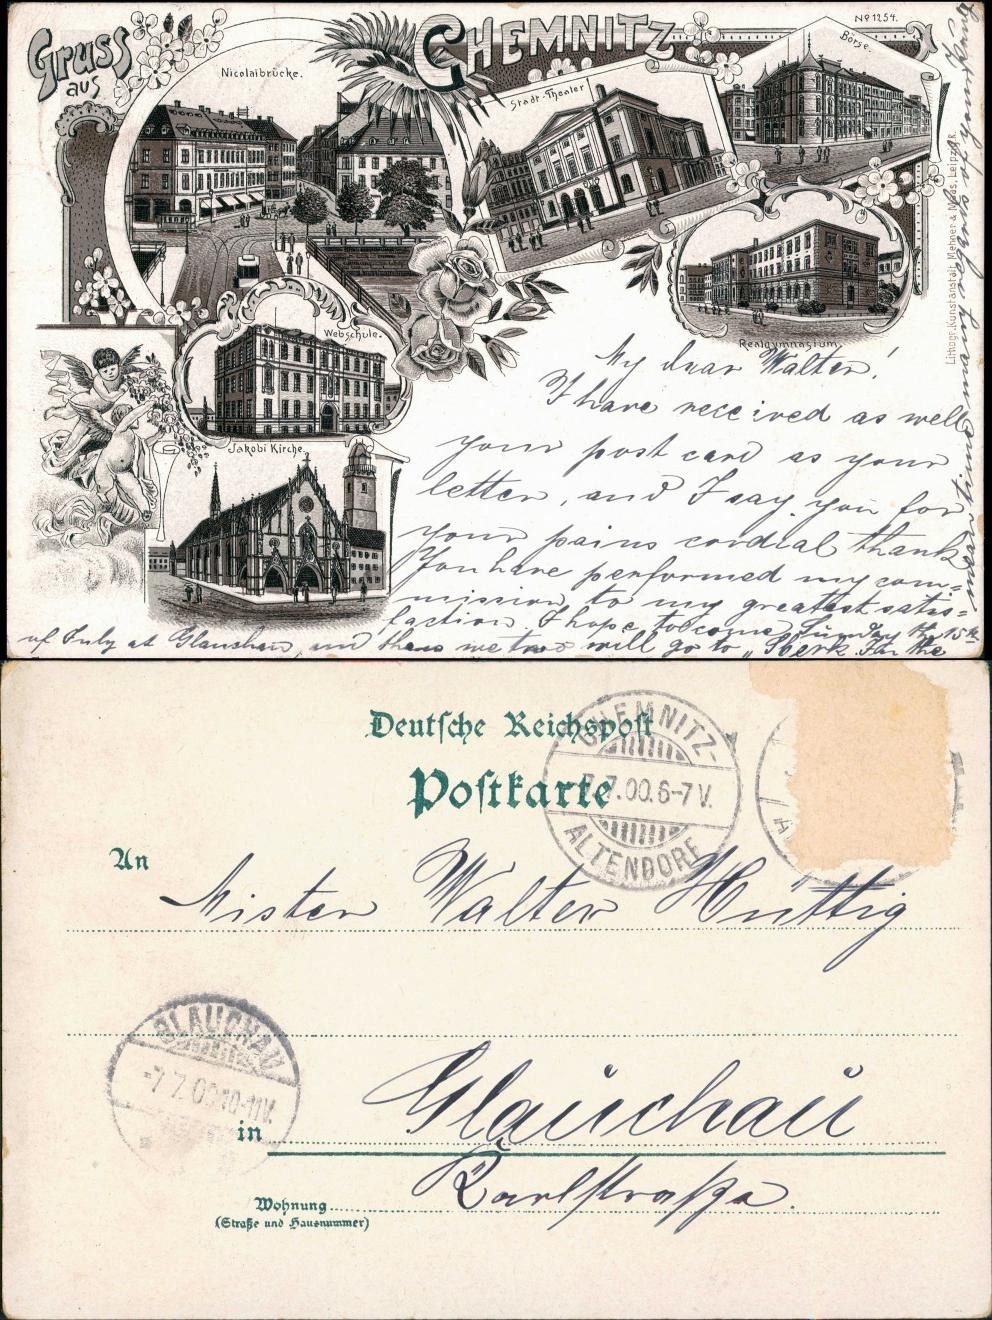 Gruss
aus
CHEMNITZ
No 1254.
Nicolaibrücke.
Stadt-Theater
Börse.
Webschule.
Realgymnasium.
Jakobi Kirche.
Lithogr. Kunstanstalt, Mehner & Maas, Leipzig R.
My dear Walter!
I have received as well
your post card as your
letter, and I say you for
your pains cordial thank
You have performed my com-
mission to my greatest satis-
faction. I hope to come Sunday the 15th
of July at Glauchau, and then we two will go to „ For the
mean time many
yours
Deutsche Reichspost
Postkarte
CHEMNITZ-
7.7.00.6-7V.
ALTENDORF
An
Mister Walter Hüttig
GLAUCHAU
-7.7.00 10-11V.
in
Glauchau
Karlstraße.
Wohnung
(Straße und Hausnummer)